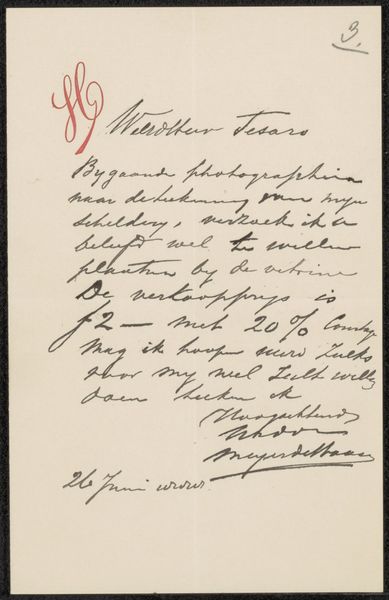 3.
H
WelEdHeer Tesaro
Bygaande photographieën
naar de teekening van myn
schildery, verzoek ik u
beleefd wel te willen
plaatsen by de vitrine
De verkoopprys is
f2 — met 20% 
Mag ik hopen
voor my wel zult willen
doen teeken ik
Hoogachtend
Meyer de Haan
26 Juni